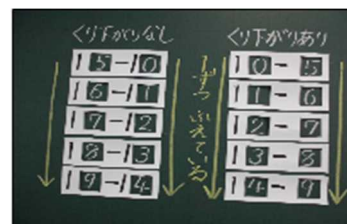 くり下がりなし
15-10
16-11
17-12
18-13
19-14
1ずつふえている
くり下がりあり
10-5
11-6
12-7
13-8
14-9